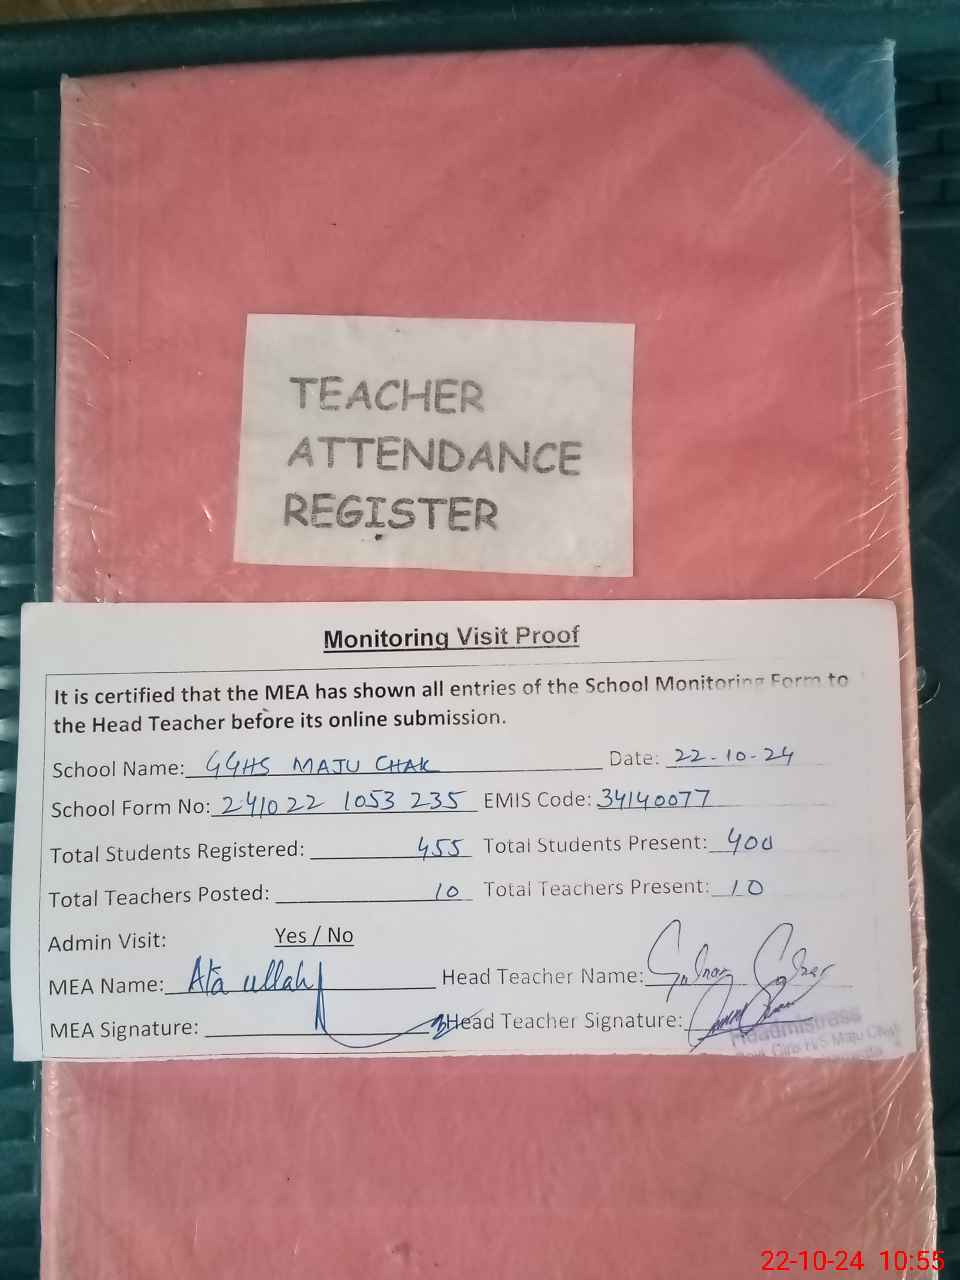 TEACHER
ATTENDANCE
REGISTER
Monitoring Visit Proof
It is certified that the MEA has shown all entries of the School Monitoring Form to
the Head Teacher before its online submission.
School Name: GGHS MAJU CHAK Date: 22-10-24
School Form No: 241022 1053 235 EMIS Code: 34140077
Total Students Registered: 455 Total Students Present: 400
Total Teachers Posted: 10 Total Teachers Present: 10
Admin Visit: Yes / No
MEA Name: Ata ullah Head Teacher Name:
MEA Signature: Head Teacher Signature:
Headmistress
Govt. Girls H/S Maju Chak
22-10-24 10:55